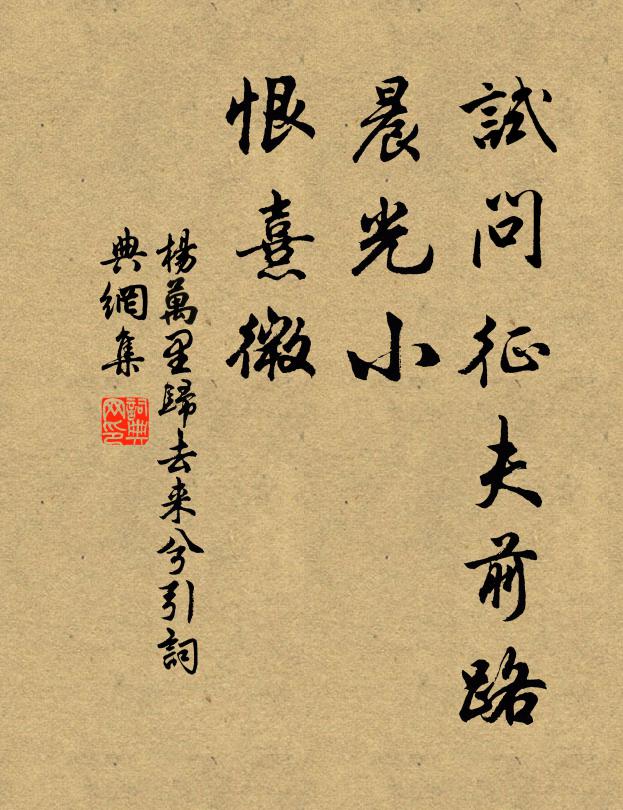 試問征夫前路
晨光小
恨熹微
楊萬里歸去来兮引詞
典網集
詞典
网印